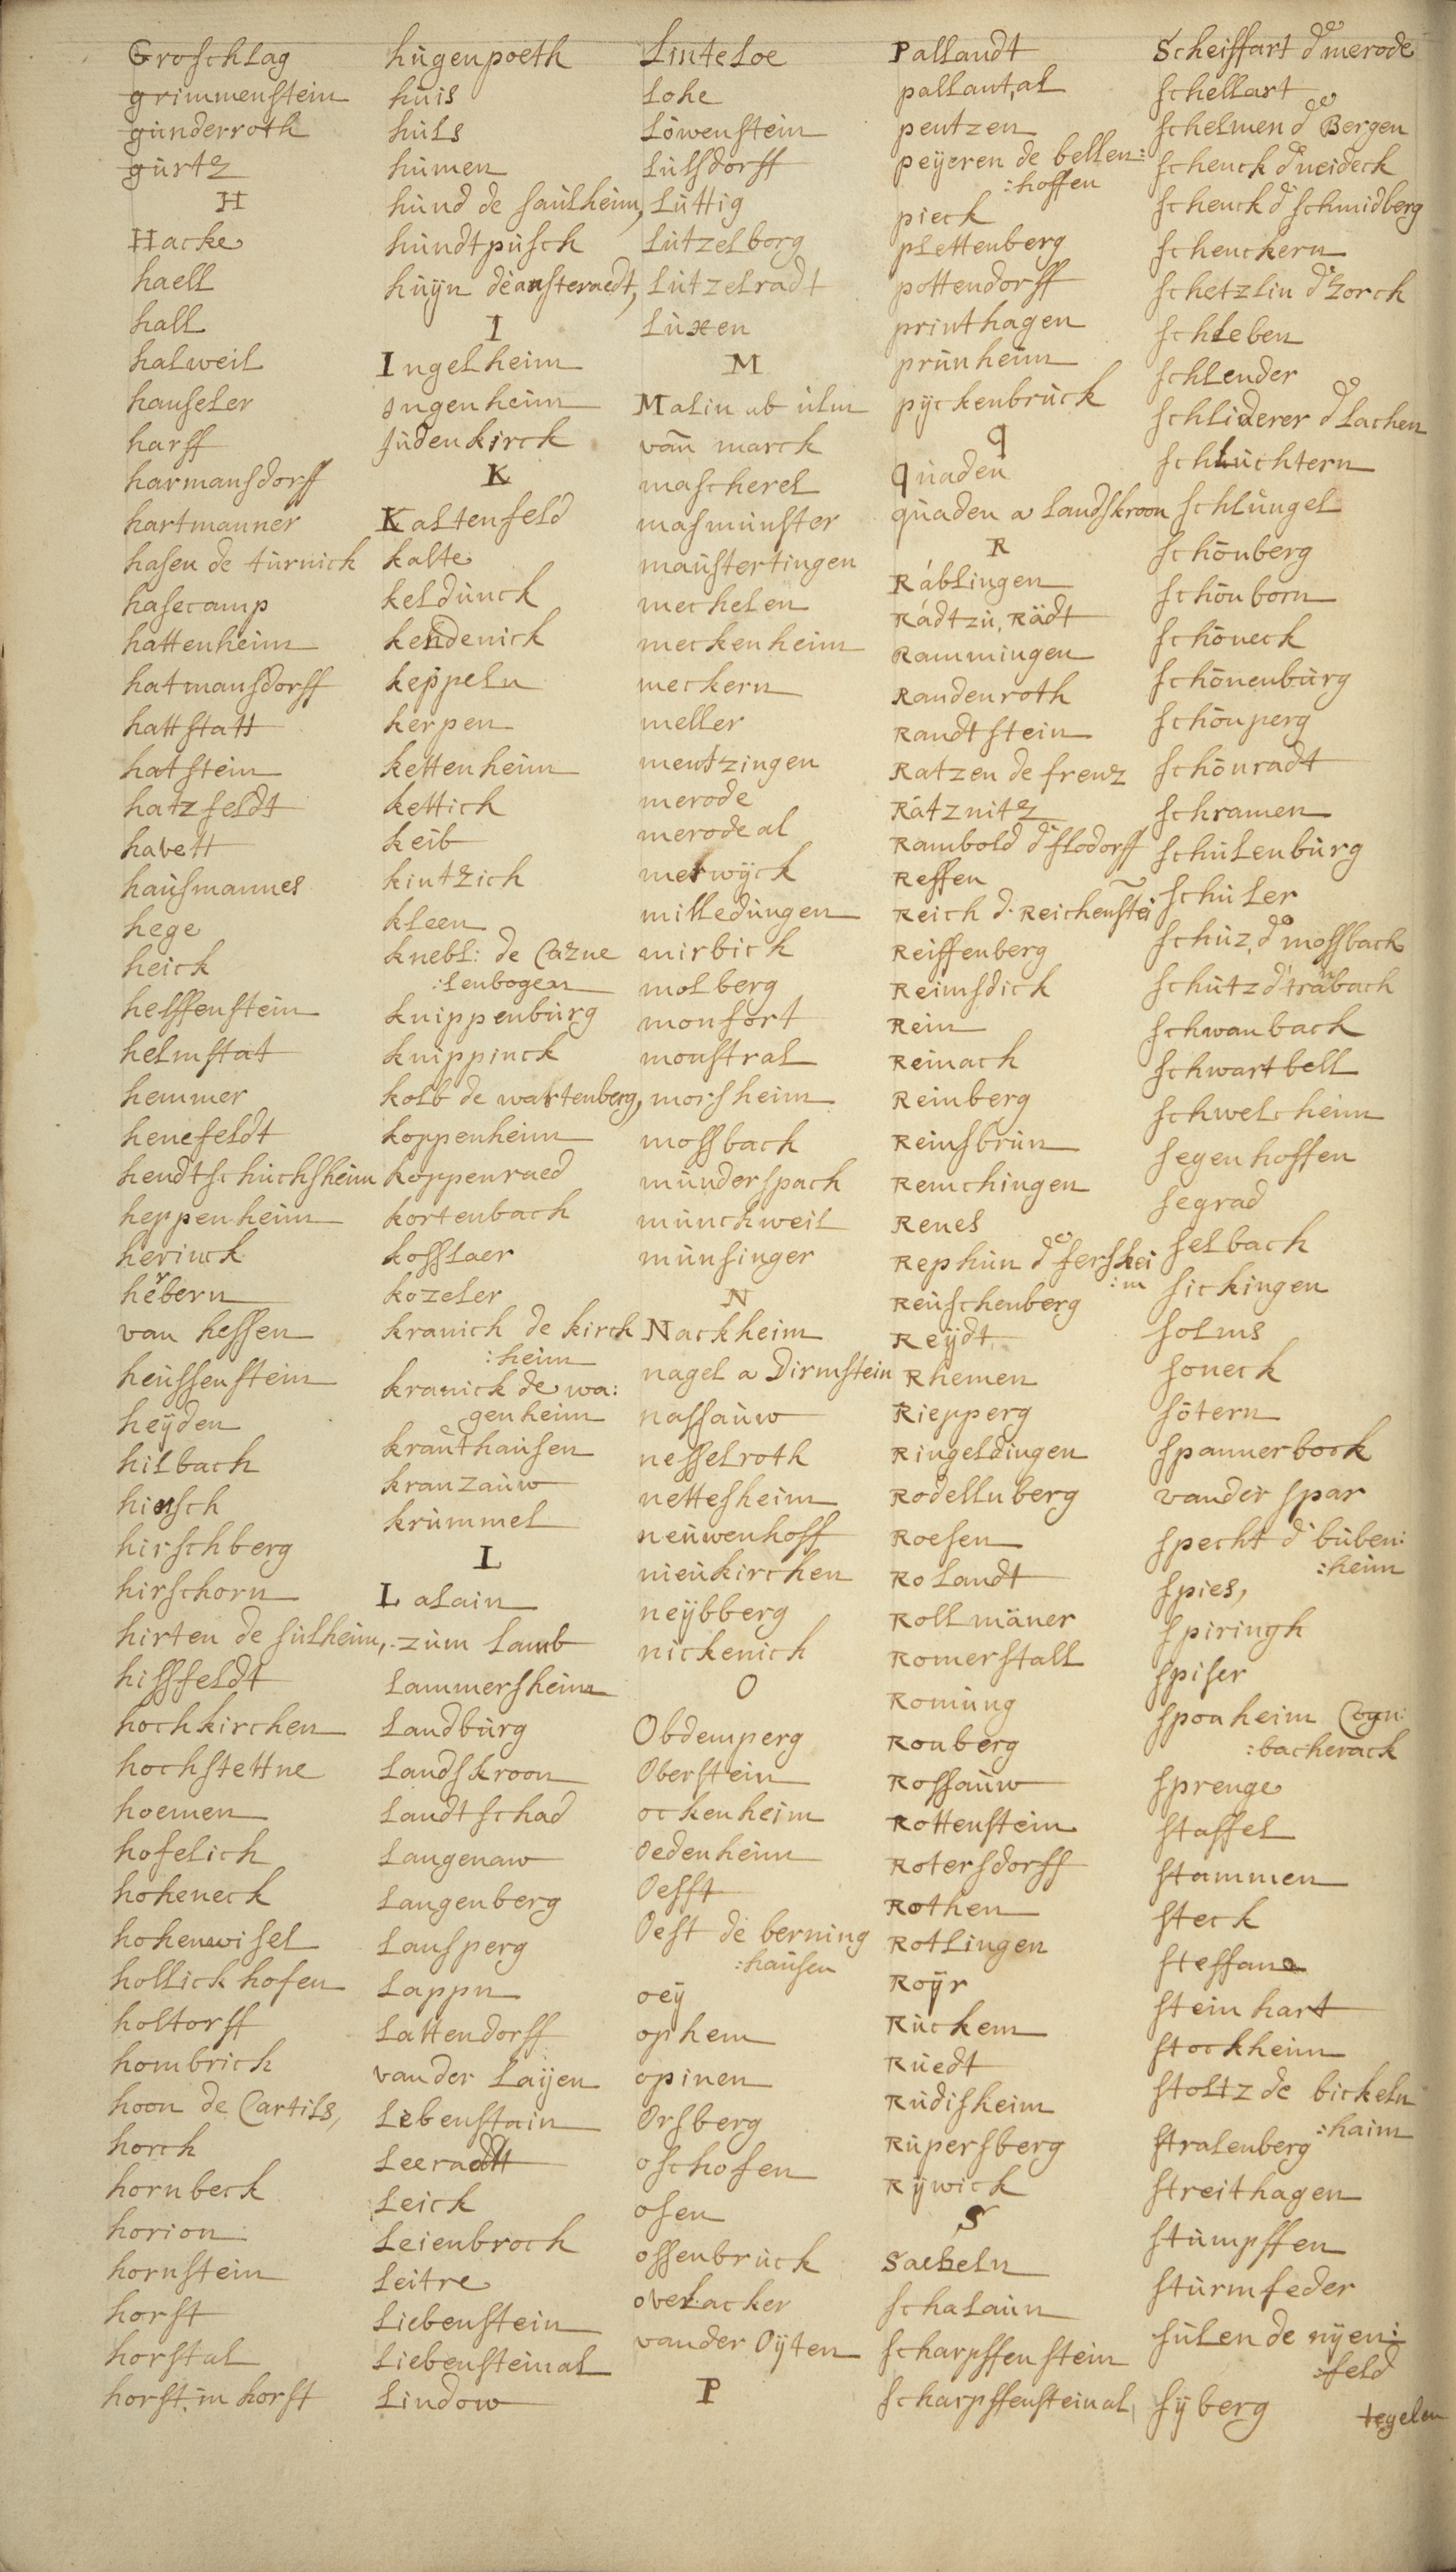 Groschlag
grimmenstein
günderroth
gürtz
H
Hacke
haell
hall
halweil
hauseler
harff
harmansdorff
hartmanner
hasen de türnick
hasecamp
hattenheim
hatmansdorff
hattstatt
hatstein
hatzfeldt
havett
haüsmannes
hege
heick
helffenstein
helmstat
hemmer
henefeldt
hendtschüchsheim
heppenheim
herinck
herbern
van hessen
heüssenstein
heÿden
hilbach
hinsch
hirschberg
hirschorn
hirten de sülheim,
hissfeldt
hochkirchen
hochstettne
hoemen
hofelich
hoheneck
hohenwisel
hollickhofen
holtorff
hombrich
hoon de Cartils,
horck
hornbeck
horion
hornstein
horst
horstal
horst in horst
hügenpoeth
hüis
hüls
hümen
hünd de saülheim,
hündtpüsch
hüÿn de ansteraedt,
I
Ingelheim
Ingenheim
Jüdenkirck
K
Kaltenfeld
kalte
keldünck
kendenick
keppeln
kerpen
kettenheim
kettich
keib
kintzich
kleen
knebl: de Cazne
:lenbogen
knippenbürg
knippinck
kolb de wartenberg,
koppenheim
koppenraed
kortenbach
kosslaer
kozeler
kranich de kirch
:heim
kranick de wa:
genheim
kraüthaüsen
kranzaüw
krümmel
L
Lalain
züm Lamb
Lammersheim
Landbürg
Landskroon
Landtschad
Langenaw
Langenberg
Lansperg
Lappn
Lattendorff
vander Laÿen
Lebenstain
Leeradtt
Leick
Leienbroch
Leitre
Liebenstein
Liebensteinal
Lindow
Linteloe
Lohe
Löwenstein
Lülsdorff
Lüttig
Lützelborg
Lützelradt
Lüxen
M
Malin ab ülm
vañ marck
mascherel
masmünster
maüstertingen
mechelen
meckenheim
meckern
meller
mentzingen
merode
merode al
merwÿck
milledüngen
mirbick
molberg
monfort
monstral
morsheim
mossbach
münderspach
münckweil
münsinger
N
Nackheim
nagel a Dirmstein
nassaüw
nesselroth
nettesheim
neüwenhoff
nieükirchen
neÿbberg
nickenich
O
Obdemperg
Oberstein
ockenheim
Oedenheim
Oefft
Oest de berning
:haüsen
oeÿ
ophem
opinen
Orsberg
oschofen
osen
ossenbrück
overlacker
vander Oÿten
P
Pallandt
pallant, al
pentzen
peÿeren de bellen:
:hoffen
pieck
plettenberg
pottendorff
printhagen
prünheim
pÿckenbrück
q
qüaden
qüaden a landskroon
R
Ráblingen
Rádtzü, Rädt
Rammingen
Randenroth
Randtstein
Ratzen de frenz
Rátznitz
Rambold d' flodorff
Reffen
Reich d. Reichenstei
Reiffenberg
Reimsdick
Rein
Reinach
Reinberg
Reinsbrün
Remchingen
Renes
Rephün de fershei
:m
Reüschenberg
Reÿdt
Rhemen
Riepperg
Ringeldingen
Rodellnberg
Roesen
Rolandt
Rollmäner
Romerstall
Romüng
Ronberg
Rossaüw
Rottenstein
Rotersdorff
Rothen
Rotlingen
Roÿr
Rückem
Rüedt
Rüdisheim
Rüpersberg
Rÿwick
S
Saeheln
schalaün
scharpffenstein
scharpffensteinal,
Scheiffart de merode
schellart
schelmen de Bergen
schenck d' neideck
schenck d' schmidberg
schenckern
schetzlin d' Lorch
schleben
schlender
schliderer de lachen
schlüchtern
schlüngel
schönberg
schönborn
schöneck
schönenbürg
schönperg
schönradt
schramen
schülenbürg
schüler
schüz, de mossbach
schütz d' träbach
schwanback
schwartbell
schwelcheim
segenhoffen
segrad
selbach
sickingen
solms
soneck
sötern
spannerbock
vander spar
specht d' büben:
:heim
spies,
spiringh
spiser
sponheim Cogn:
:bacherack
sprenge
staffel
stammen
steck
steffane
steinhart
stockheim
stoltz de bickeln
:haim
stralenberg
streithagen
stümpffen
stürmfeder
sülen de nÿen:
:feld
sÿberg
tegelen